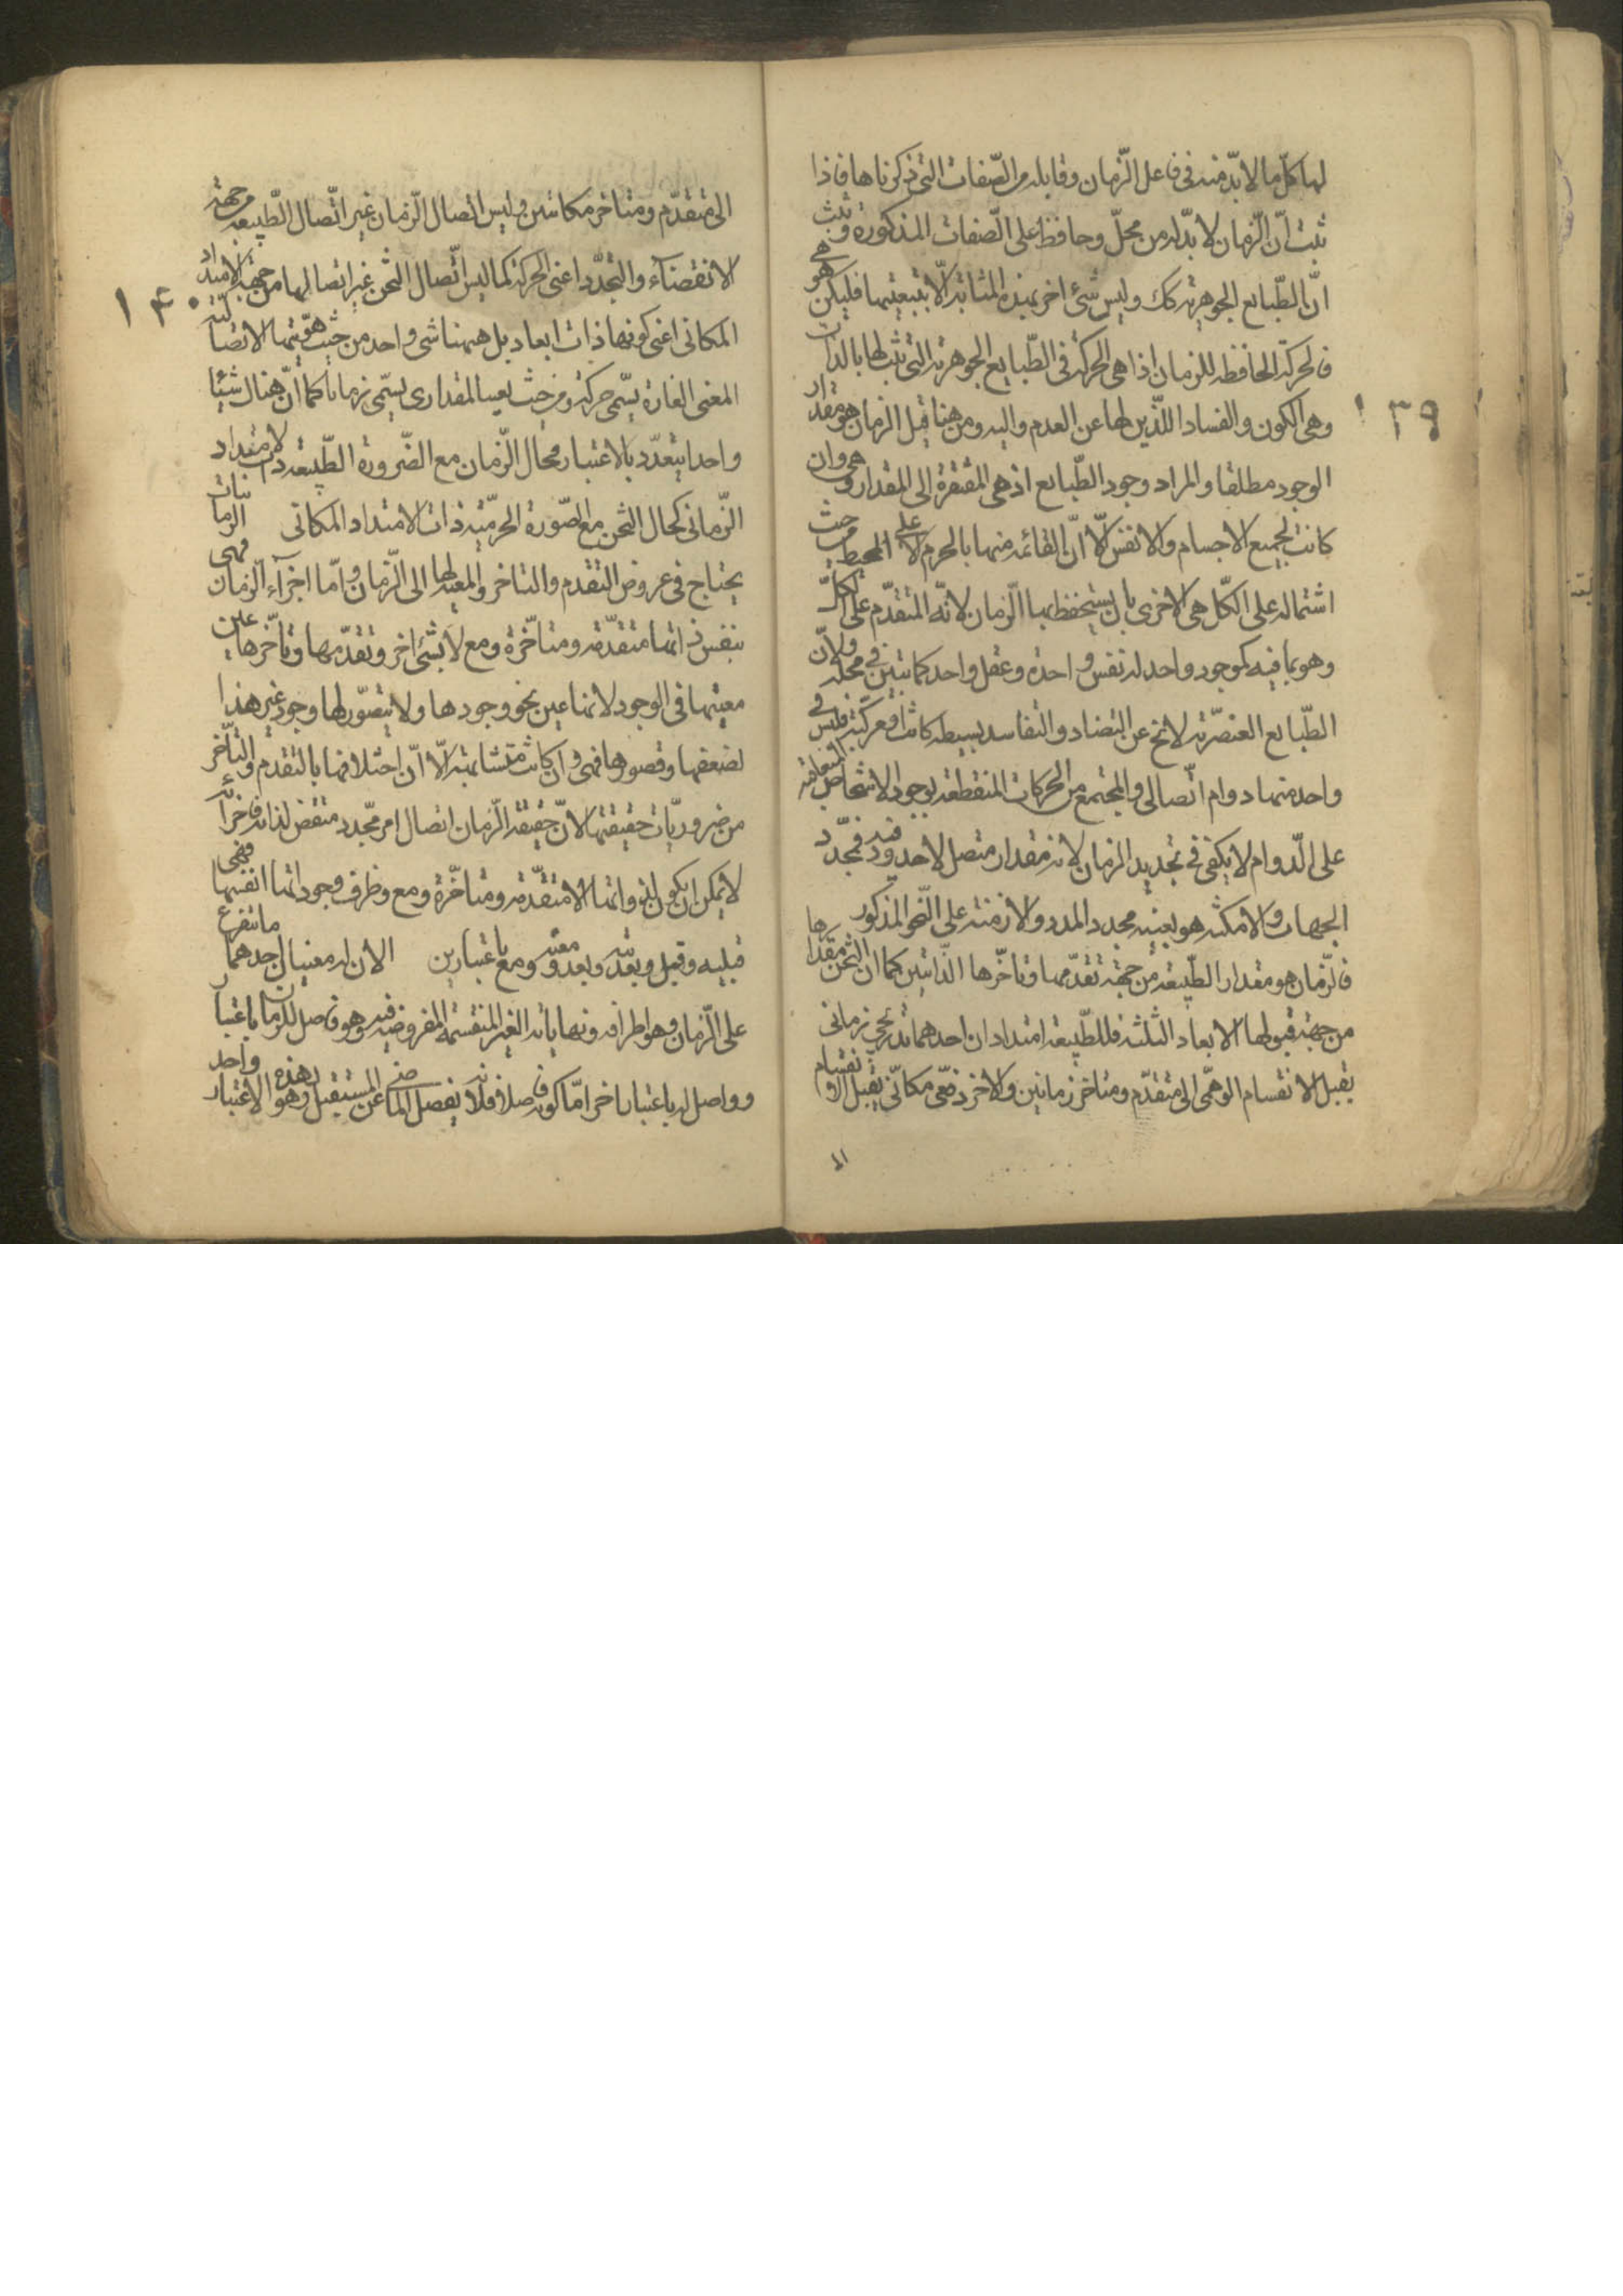 لها كلّ ما لا بدّ منه فى فاعل الزّمان وقابله من الصّفات التى ذكرناها فاذا
ثبت انّ الزّمان لا بدّ له من محلّ وحافظ على الصّفات المذكورة وثبت
انّ الطّبايع الجوهرية كك وليس شئ اخر بهذه المثابة الّا بتبعيتها فليكن هى هو
فالحركة الحافظه للزمان اذا هى الحركة فى الطّبايع الجوهرية التى ثبت لها بالذات
وهى الكون والفساد اللّذين لها عن العدم واليه ومن هنا قيل الزمان هو مقدار
الوجود مطلقا والمراد وجود الطّبايع اذ هى المفتقرة الى المقدار وهى وان
كانت لجميع الاجسام والانفس الّا انّ القائمه منها بالجرم الاعلى المحيط من حيث
اشتماله على الكّل هى الاحرى بان يستحفظ بها الّزمان لانّه المتقدّم على الكلّ
وهو بما فيه كموجود واحد له نفس واحدة وعقل واحد كما تبيّن فى محلّه ولانّ
الطّبايع العنصّرية لا تخ عن التضاد والتفاسد بسيطه كانت او مركّبة فليس فى
واحد منها دوام اتّصالى والمجتمع من الحركات المنقطعه بوجود الاشخاص المتعاقبه
على الّدوام لا يكفى فى تجديد الزمان لانه مقدار متصل لا حدود فيه فمجدّد
الجهات والامكنة هو بعينه مجدد المدد والازمنة على النّحو المذكور
فالزّمان هو مقدار الطّبيعة من جهة تقدّمها وتاخّرها الذّاتيين كما ان الثخن مقدارها
من جهة قبولها الابعاد الثلثة فللطّبيعة امتدادان احدهما تدريجى زمانى
يقبل الانقسام الوهمّى الى متقدّم ومتاخر زمانيين والاخر دفعّى مكانّى يقبل الانقسام
الى
١٣٩
الى متقدّم ومتاخر مكانيين وليس اتصال الزّمان غير اتّصال الطّبيعة من جهة
الانقضآء والتجدّد اعنى الحركة كما ليس اتّصال الثخن غير اتصالها من جهة الامتداد
المكانى اعنى كونها ذات ابعاد بل ههنا شئ واحد من حيث هويّتها الاتصالية
المعنى الغارة يسمّى حركة ومن حيث المقدارى يسمّى زمانا كما انّ هناك شيئا
واحدا يتعدّد بالاعتبار فحال الّزمان مع الصّورة الطّبيعه ذات الامتداد
الزّمانى كحال الثخن مع الصّورة الجرميّه ذات الامتداد المكانى
يحتاج فى عروض التقدم والتاخر والمعية لها الى الّزمان وامّا اجزآء الّزمان فهى
بنفس ذاتها متقدّمة ومتاخّرة ومع لا بشئ اخر وتقدّمها وتاخّرها عين
معيتها فى الوجود لانها عين نحو وجودها ولا يتصّور لها وجود غير هذا
لضعفها وقصورها فهى وان كانت متشابهة الّا انّ اختلافها بالتقدم والتاخّر
من ضروريّات حقيقتها لانّ حقيقة الّزمان اتصال امر متجّدد منقض لذاته فاجزائه
لا يمكن ان يكون الا متقدّمة ومتاخّرة ومع وظرف وجوداتها انفسها فهى
قبليه وقبل وبعديّة وبعد ومعيّة ومع باعتبارين الان له معنيان احدهما ما يتفرع
على الّزمان وهو اطرافه ونهاياته الغير المنقسمه المفروضه فيه وهو فاصل للزمان باعتبار
وواصل له باعتبار اخر امّا كونه فاصلا فلانه يفصل الماضى عن المستقبل وهو بهذا الاعتبار واحد
١٤٠